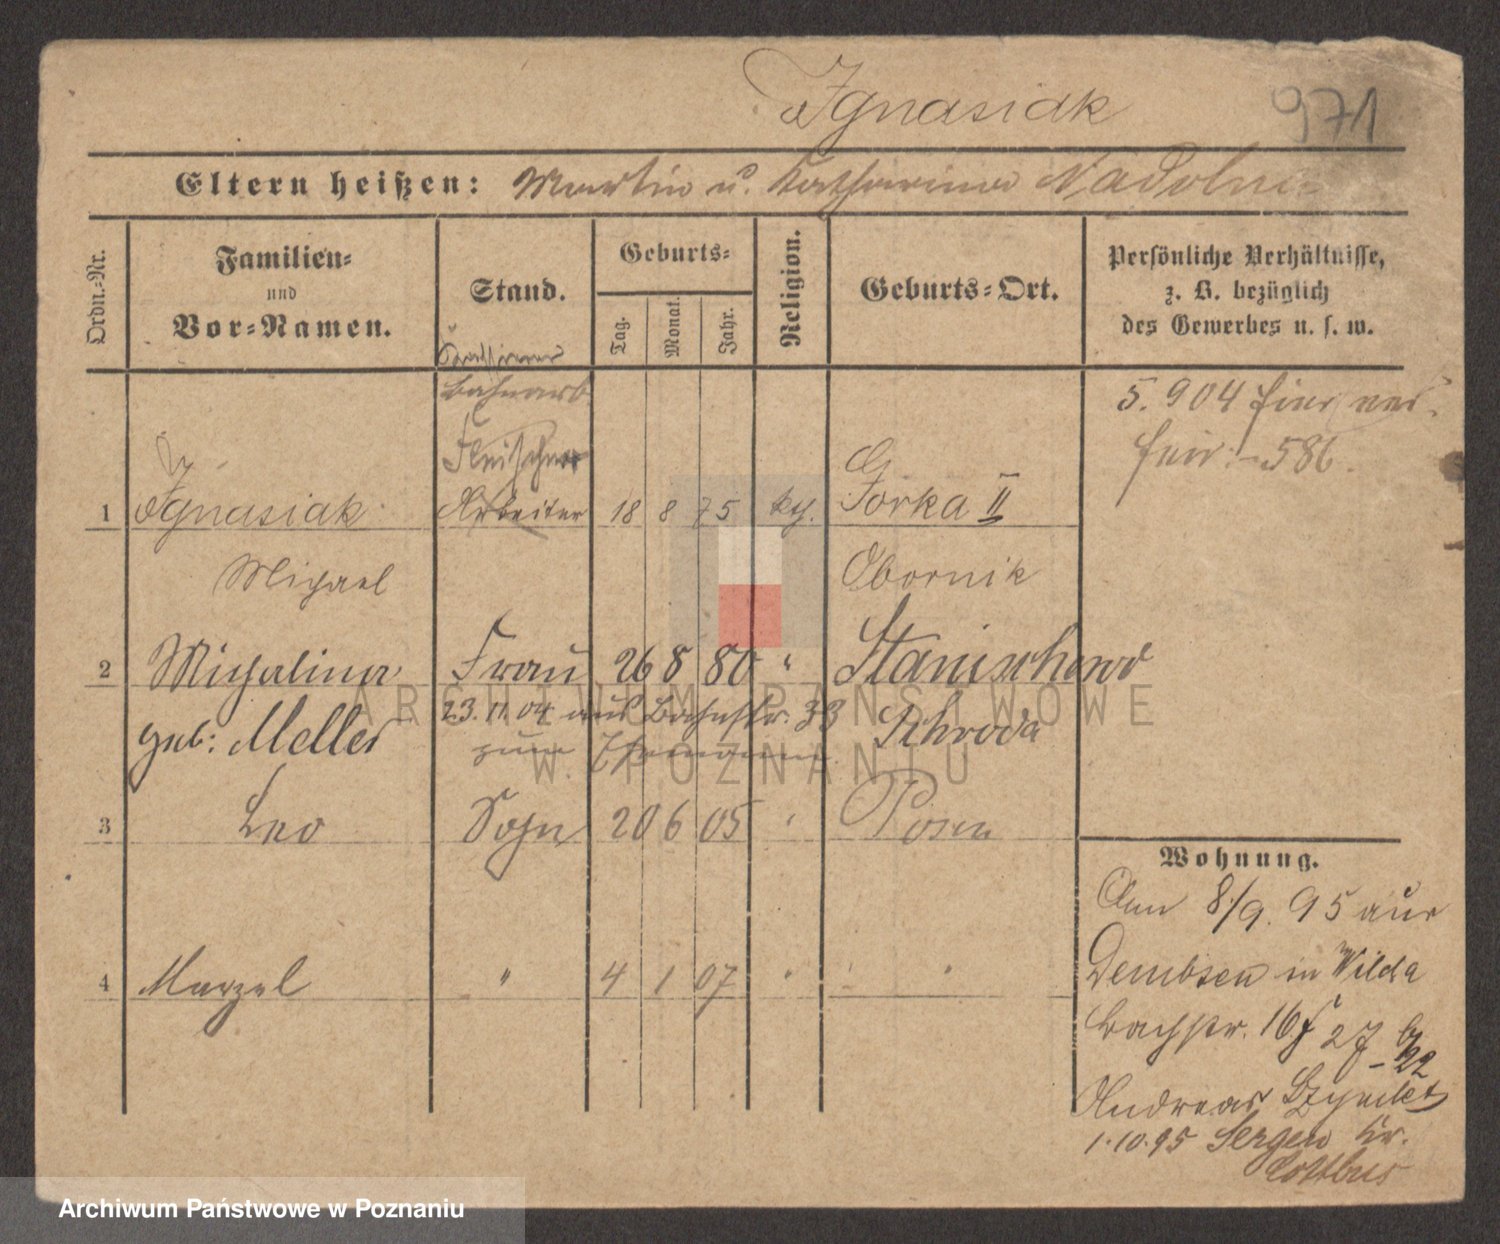 Ignasiak 971
Eltern heißen: Martin u. Katharina Nadolna
Ordn.-Nr.
Familien-
und
Vor-Namen.
Stand.
Geburts-
Tag.
Monat.
Jahr.
Religion.
Geburts-Ort.
Persönliche Verhältnisse,
z. B. bezüglich
des Gewerbes u. s. w.
Bahnarb
5. 904
586.
Fleischer
1 Ignasiak Arbeiter 18 8 75 kth. Gorka II
Michael Obornik
2 Michalina Frau 26 8 80 " Stanischewo
geb: Meller 23. 11. 04 aus Bahnstr. 33 Schroda
zum Ehemann.
3 Leo Sohn 20 6 05 " Posen
Wohnung.
Am 8/9. 95 aus
4 Marzel " 4 1 07 " "
Dembsen in Wilda
Bachstr. 16 f 27
Andreas
1.10.95 Sergen Kr.
Cottbus
ARCHIWUM PAŃSTWOWE
W POZNANIU
Archiwum Państwowe w Poznaniu